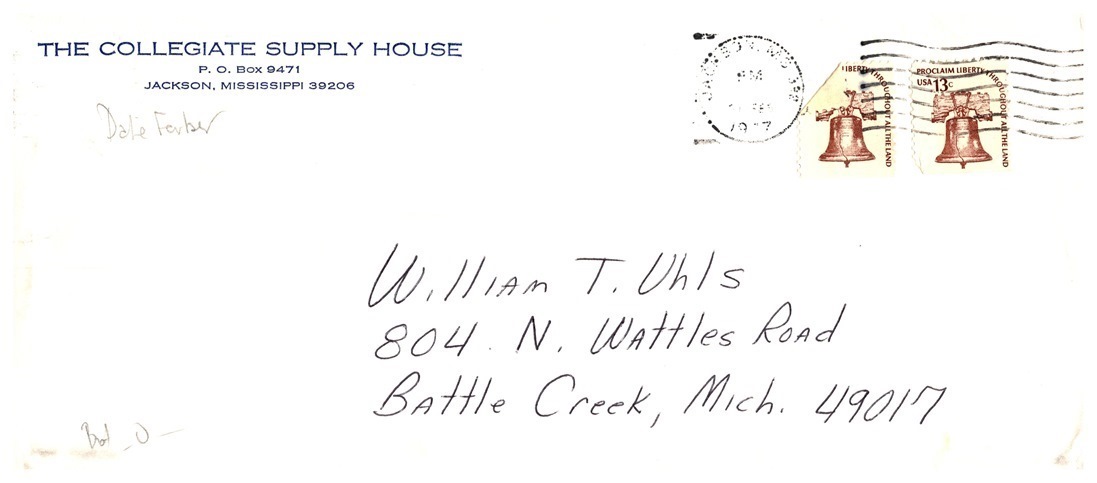 THE COLLEGIATE SUPPLY HOUSE
P. O. Box 9471
JACKSON, MISSISSIPPI 39206
JACKSON, MS
PM
1977
LIBERTY THROUGHOUT ALL THE LAND
PROCLAIM LIBERTY THROUGHOUT ALL THE LAND
USA 13c
William T. Uhls
804 N. Wattles Road
Battle Creek, Mich. 49017